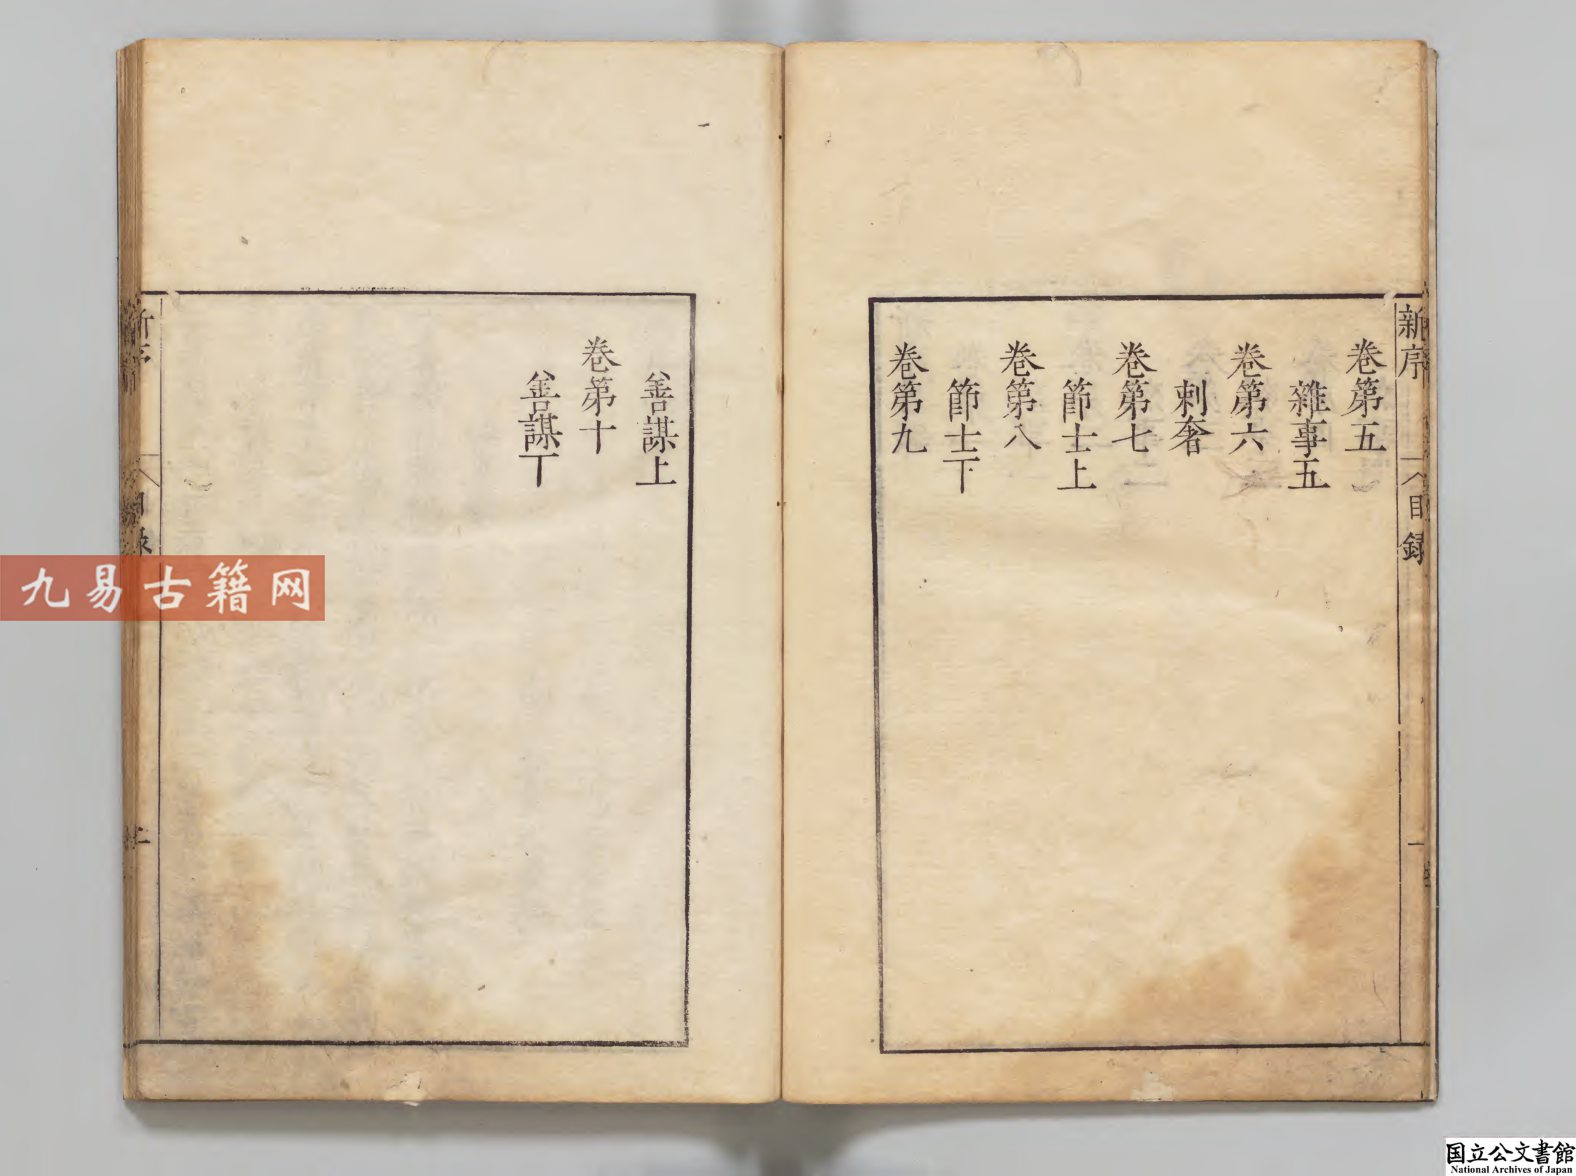 新序
目錄
一
卷第五
雜事五
卷第六
刺奢
卷第七
節士上
卷第八
節士下
卷第九
善謀上
卷第十
善謀下
新序
目錄
二
九易古籍网
国立公文書館
National Archives of Japan